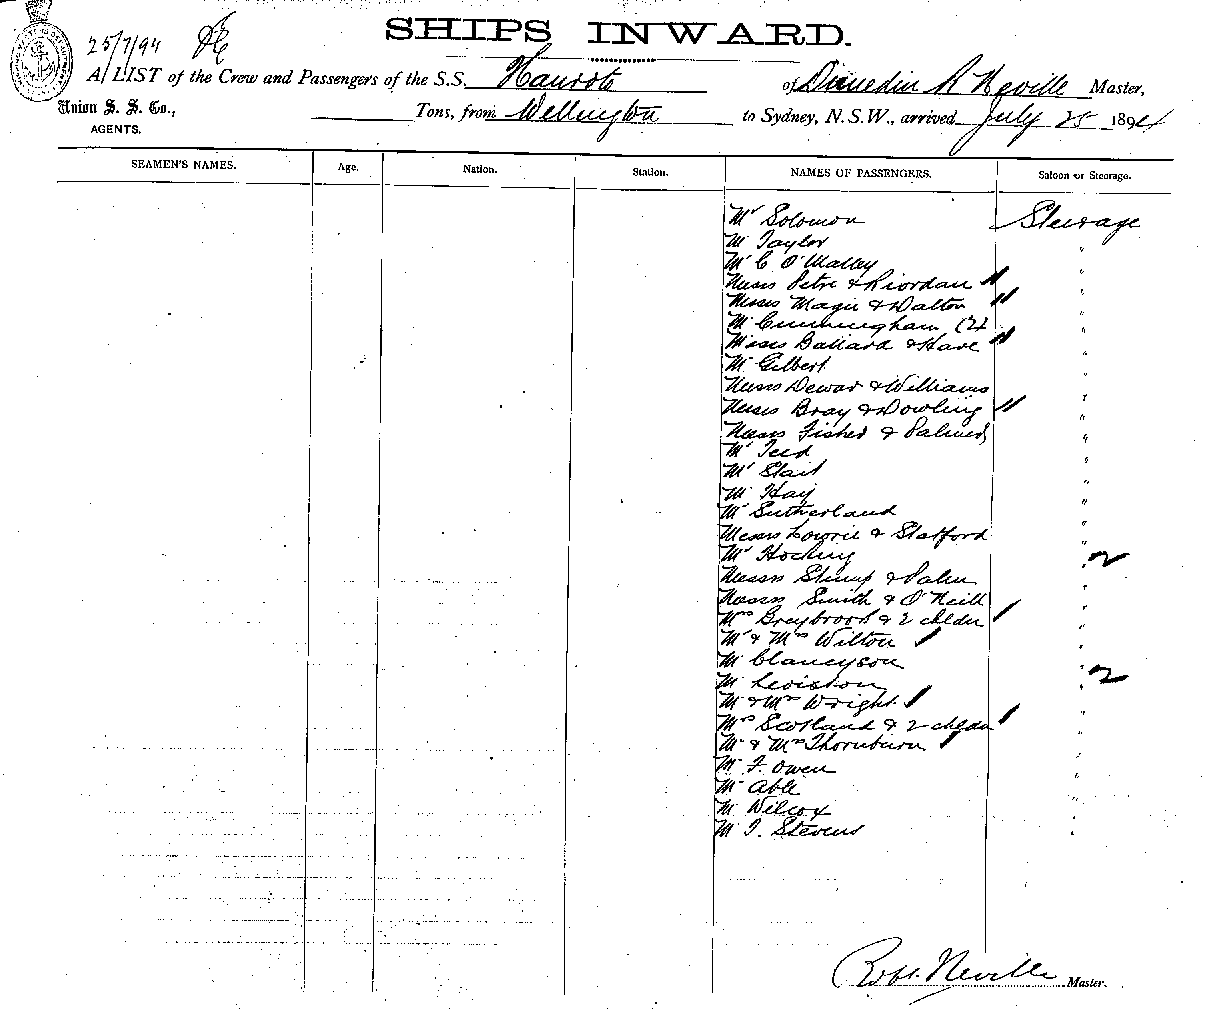 25/7/94
SHIPS INWARD.
A LIST of the Crew and Passengers of the S.S. Hauroto of Dunedin R Neville Master,
Union S. S. Co., Tons, from Wellington to Sydney, N.S.W., arrived July 25 1894
AGENTS.
SEAMEN'S NAMES. Age. Nation. Station. NAMES OF PASSENGERS. Saloon or Steerage.
Mr Solomon Steerage
Mr Taylor "
Mr C O'Malley "
Messrs Petre & Riordan "
Messrs Magie & Walton "
Mr Cunningham (2) "
Misses Ballard & Hare "
Mr Gilbert "
Messrs Dewar & Williams "
Messrs Bray & Dowling "
Messrs Fisher & Palmer "
Mr Teed "
Mr Stait "
Mr Hay "
Mr Sutherland "
Messrs Lowrie & Stafford "
Mr Hocking " 2
Messrs Stump & "
Messrs Smith & O'Neill "
Mrs Greybrook & 2 childn "
Mr & Mrs Wilton "
Mr Clanceyson "
Mr Leviston " 2
Mr & Mrs Wright "
Mrs Scotland & 2 childn "
Mr & Mrs Thornburn "
Mr F. Owen "
Mr Able "
Mr Wilcox "
Mr J. Stevens "
Robt. Neville Master.